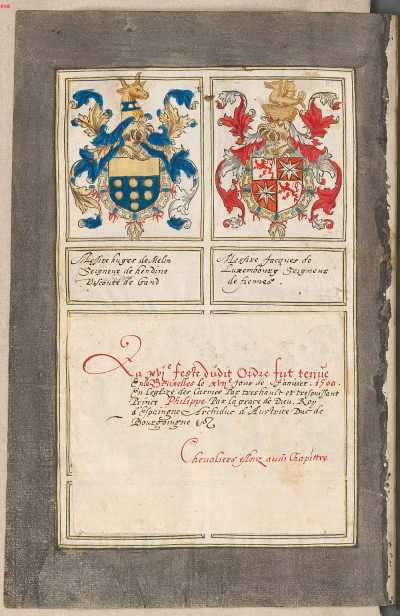 Messire huges de Melin
Seigneur de hendine
Visconte de Gand
Messire Jacques de
Luxembourg Seigneur
de fiennes.
La xvi.e feste dudit Ordre fut tenue
Bruxelles le xvii.e Jour de Janvier. 1500.
En leglize des Carmes Par treshault et trespuissant
Prince Philippe Par la grace de Dieu, Roy
d'Espaingne Archiduc d'Austrice Duc de
Bourgoingne
Chevaliers esleuz audit Chapittre